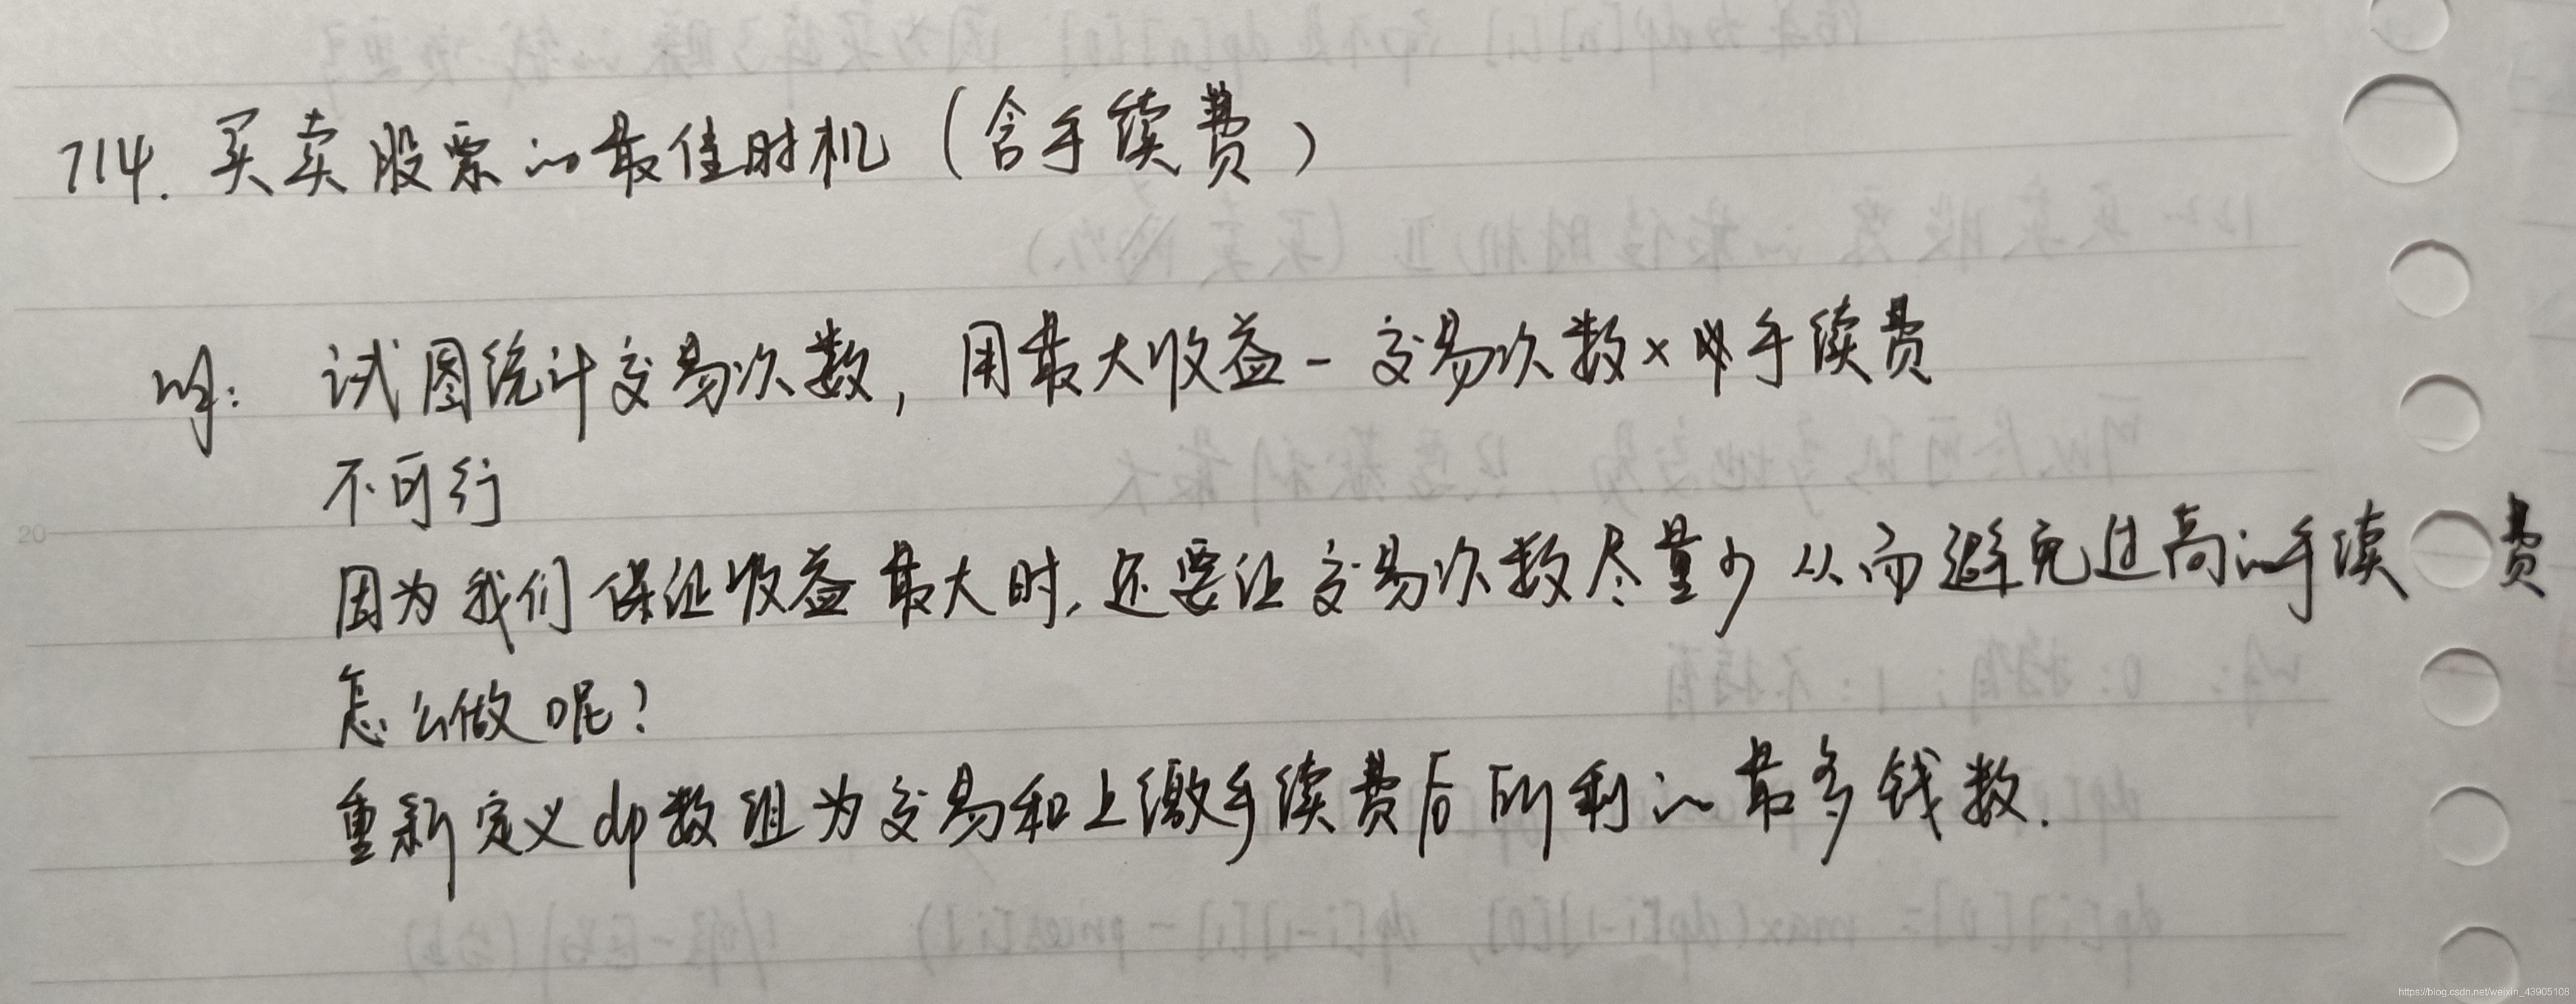 714. 买卖股票的最佳时机（含手续费）
试图统计交易次数，用最大收益－交易次数×手续费
不可行
20
因为我们保证收益最大时，还要让交易次数尽量少 从而避免过高的手续费
怎么做呢？
重新定义dp数组为交易和上缴手续费后所剩的最多钱数.
https://blog.csdn.net/weixin_43905108